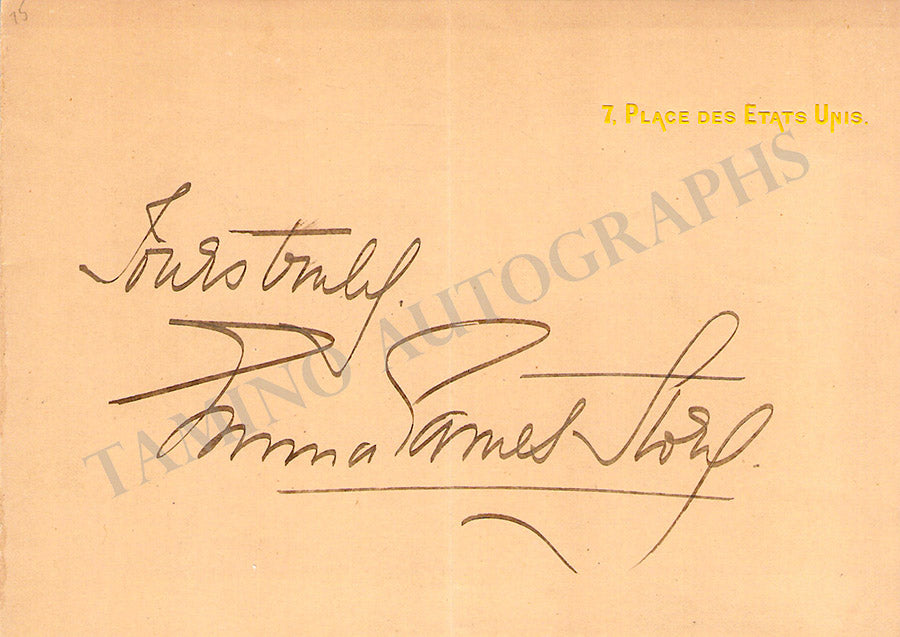 15
7, PLACE DES ETATS UNIS.
Yours truly.
Emma Eames Story.
TAMINO AUTOGRAPHS